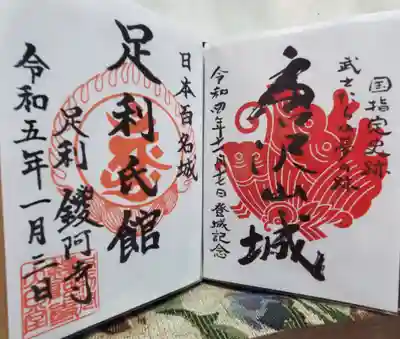 国指定史跡
唐沢山城
令和四年十一月七日登城記念
日本百名城
足利氏館
足利 鑁阿寺
令和五年一月三日